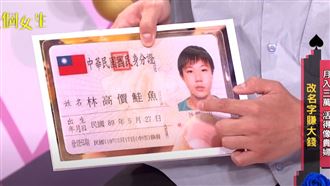 個女生
中華民國國民身分證
姓名 林高價鮭魚
出生年月日 民國 89 年 5 月 27 日
月入三萬 活得像貴婦
改名字賺大錢